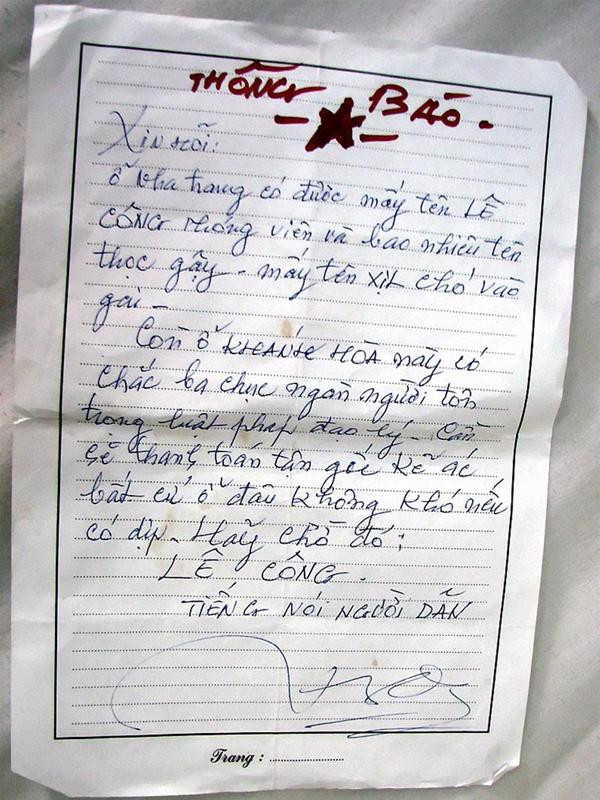 THÔNG BÁO -
Xin hỏi:
Ở Nha trang có được mấy tên LÊ
CÔNG phóng viên và bao nhiêu tên
thọc gậy - mấy tên xịt chó vào
gai -
Còn ở KHÁNH HÒA này có
chắc ba chục ngàn người tôn
trọng luật pháp đạo lý. Cần
sẽ thanh toán tận gốc kẻ ác
bất cứ ở đâu không khó nếu
có dịp. Hãy chờ đó:
LÊ CÔNG.
TIẾNG NÓI NGƯỜI DÂN
Trang : ........................